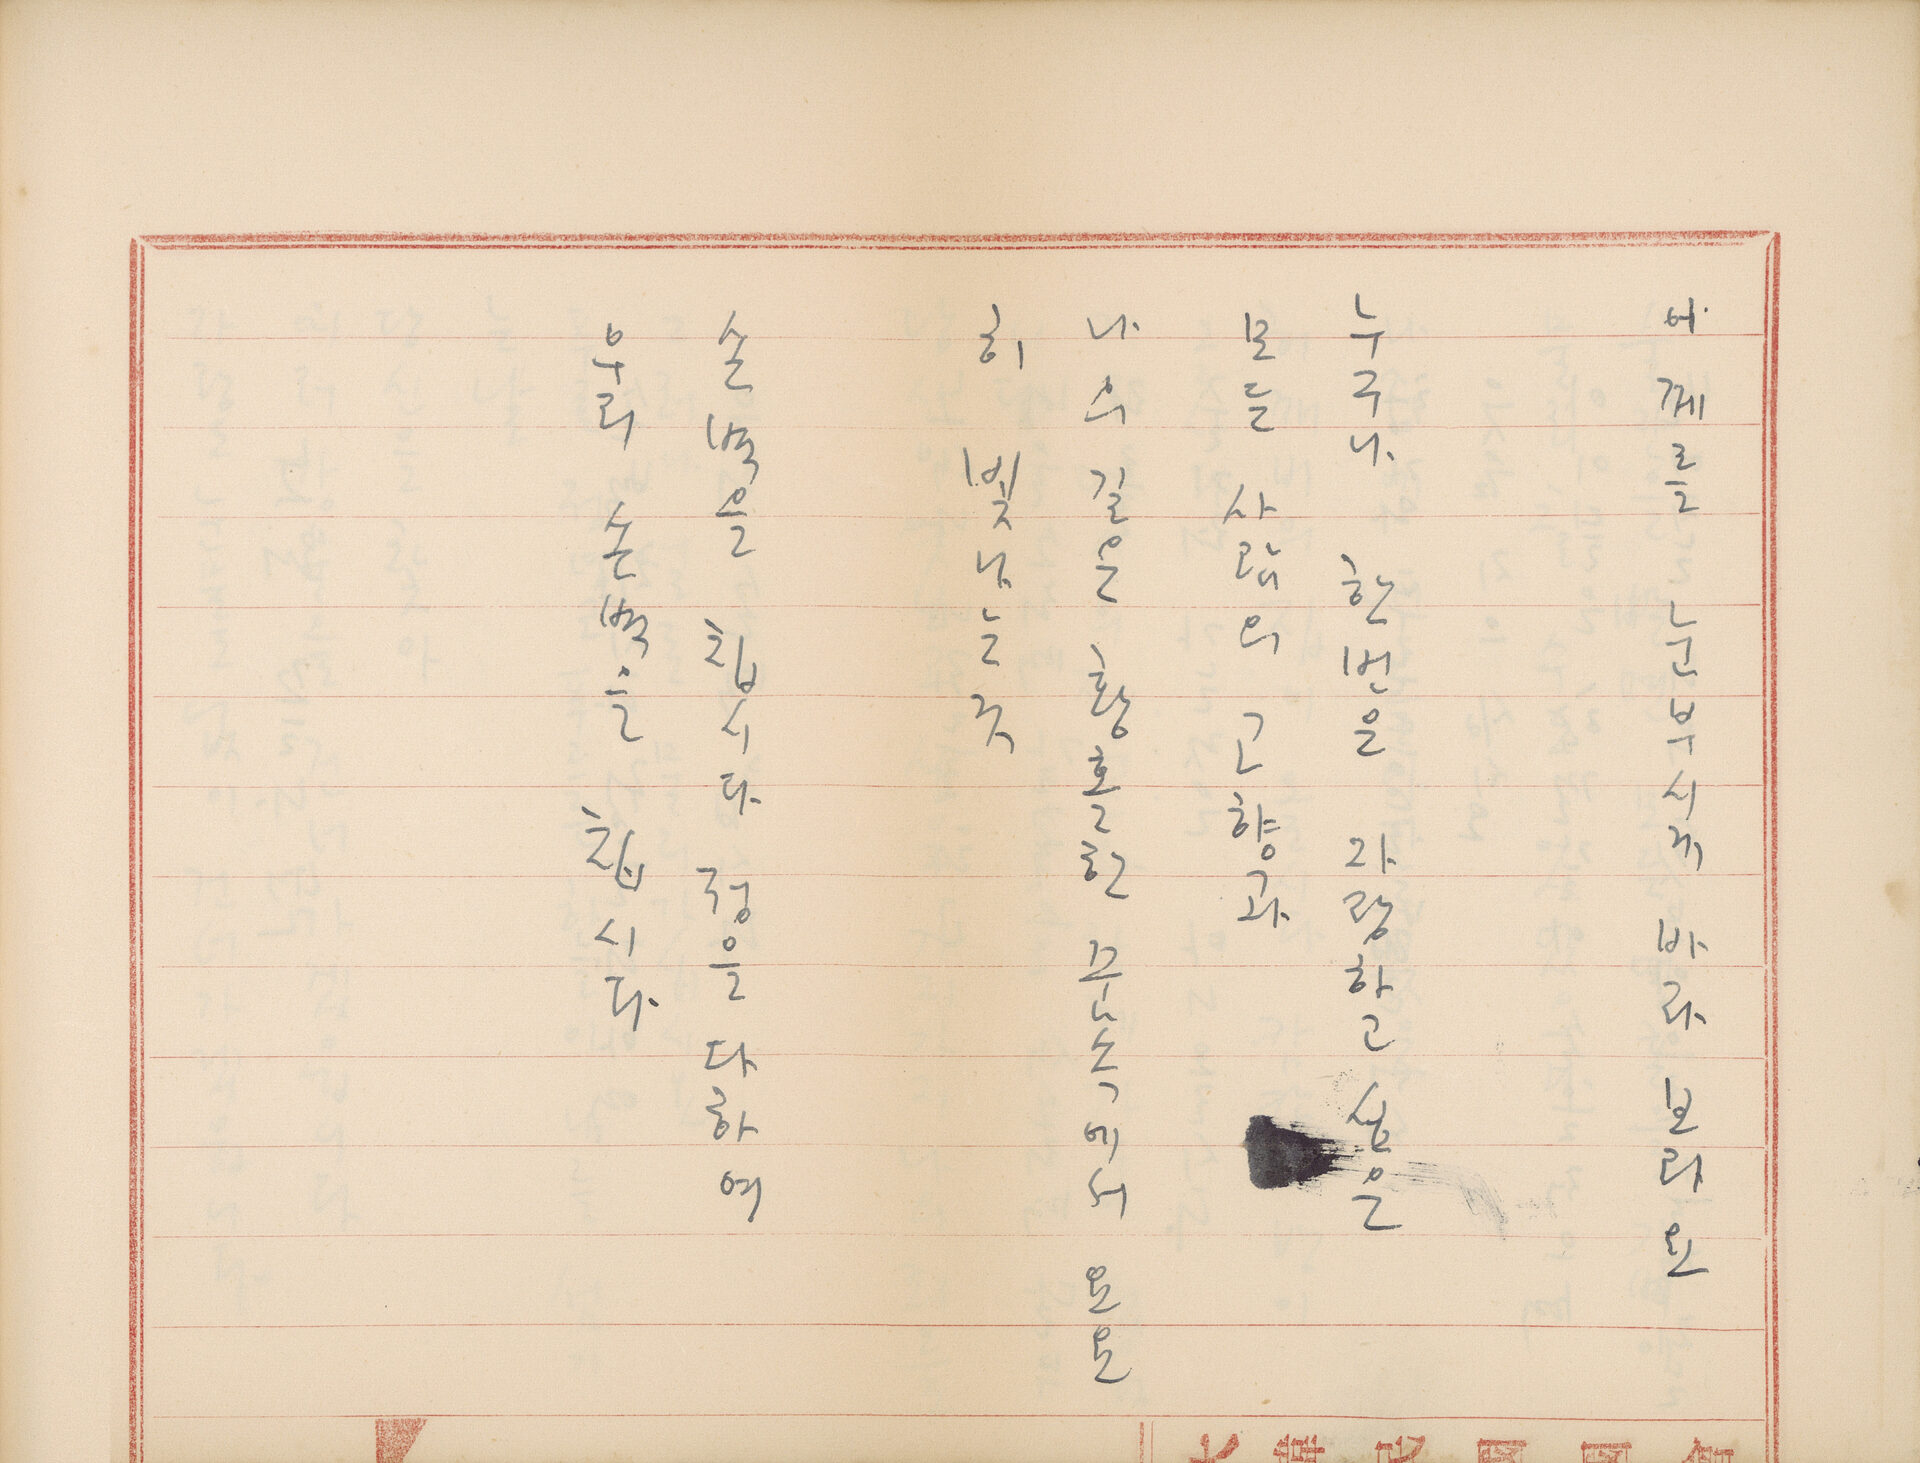 어께를 눈부시게 바라 보라
누구나 한번은 자랑하고 싶은
모든 사람의 고향과
나의 길은 황홀한 꿈속에서 요요
히 빛나는 것
손벽을 칩시다 정을 다하여
우리 손벽을 칩시다